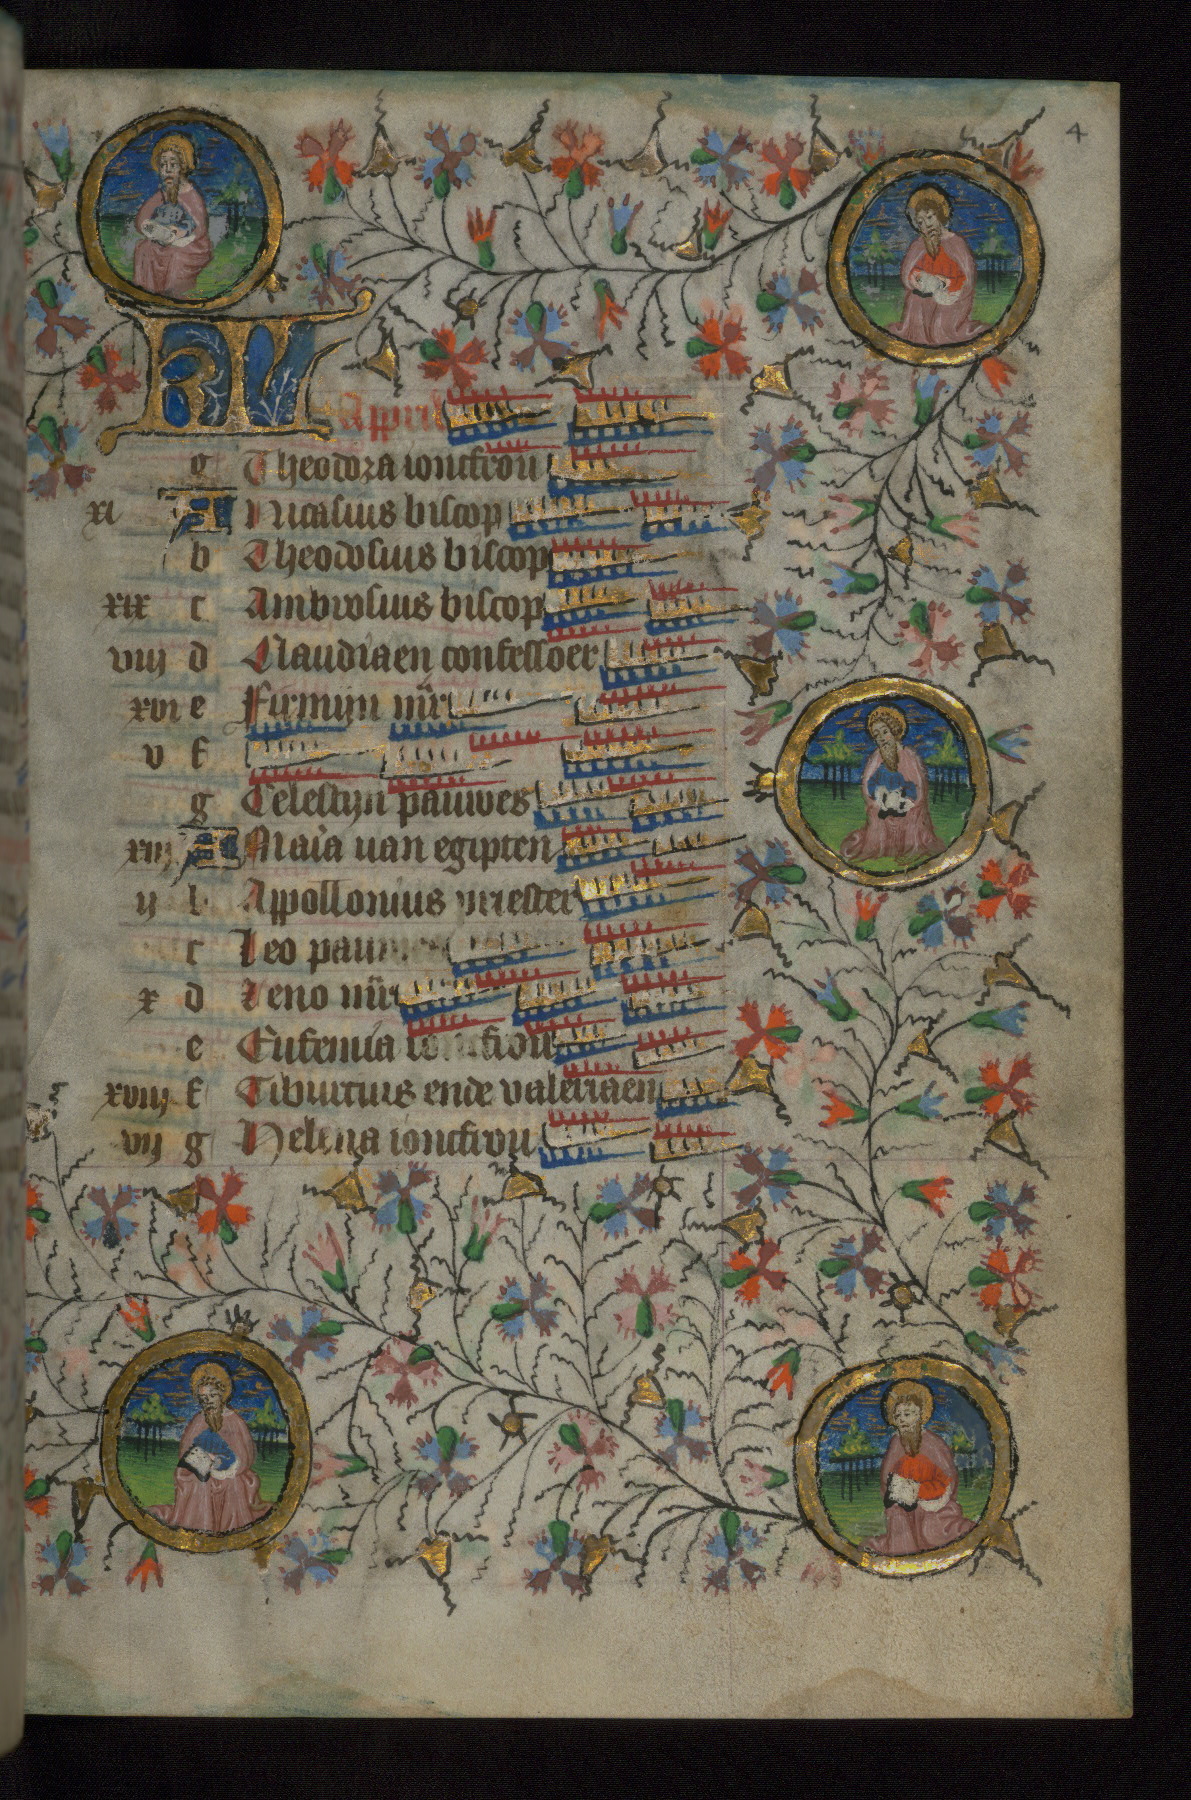 4
KL Appril
g Theodora ioncfrou
xi A Nicasius biscop
b Theodosius biscop
xix c Ambrosius biscop
viij d Claudiaen confessoer
xvi e Firmijn mr̄
v f
g Celestijn pauwes
xiij A Maria van egipten
ij b Appollonius priester
c Leo pauwes
x d Zeno mr̄
e Eufemia ioncfrou
xviij f Tiburtius ende valeriaen
vij g Helena ioncfrou